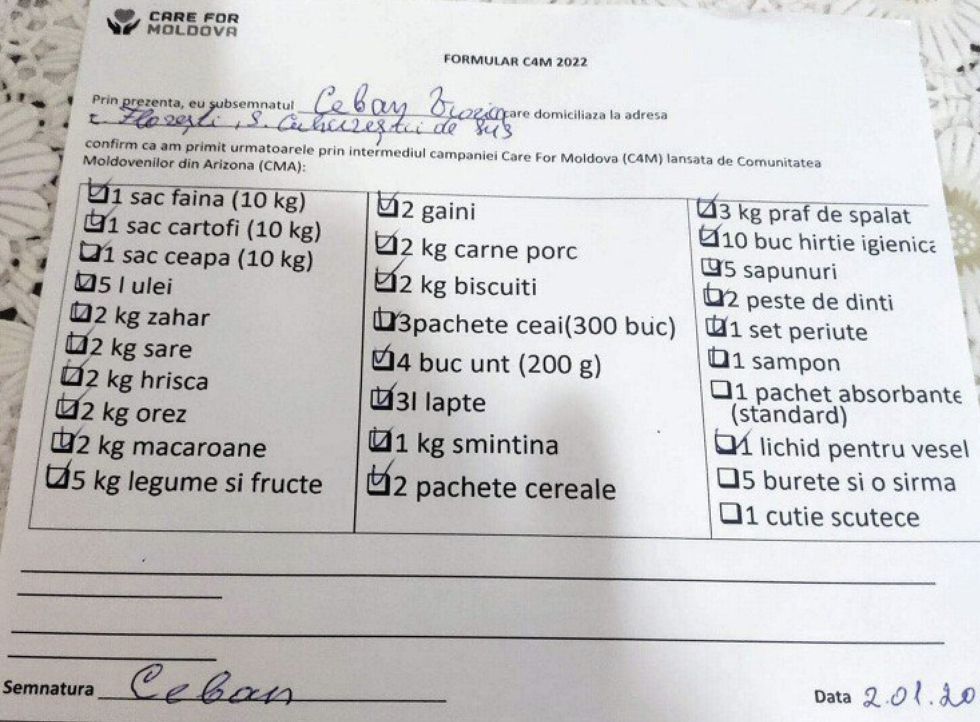 CARE FOR
MOLDOVA
FORMULAR C4M 2022
Prin prezenta, eu subsemnatul Ceban care domiciliaza la adresa
r. Florești, s. Cuhureștii de Sus
confirm ca am primit urmatoarele prin intermediul campaniei Care For Moldova (C4M) lansata de Comunitatea
Moldovenilor din Arizona (CMA):
1 sac faina (10 kg)
1 sac cartofi (10 kg)
1 sac ceapa (10 kg)
5 l ulei
2 kg zahar
2 kg sare
2 kg hrisca
2 kg orez
2 kg macaroane
5 kg legume si fructe
2 gaini
2 kg carne porc
2 kg biscuiti
3pachete ceai(300 buc)
4 buc unt (200 g)
3l lapte
1 kg smintina
2 pachete cereale
3 kg praf de spalat
10 buc hirtie igienica
5 sapunuri
2 peste de dinti
1 set periute
1 sampon
1 pachet absorbante
(standard)
1 lichid pentru vesel
5 burete si o sirma
1 cutie scutece
Semnatura Ceban
Data 2.01.20